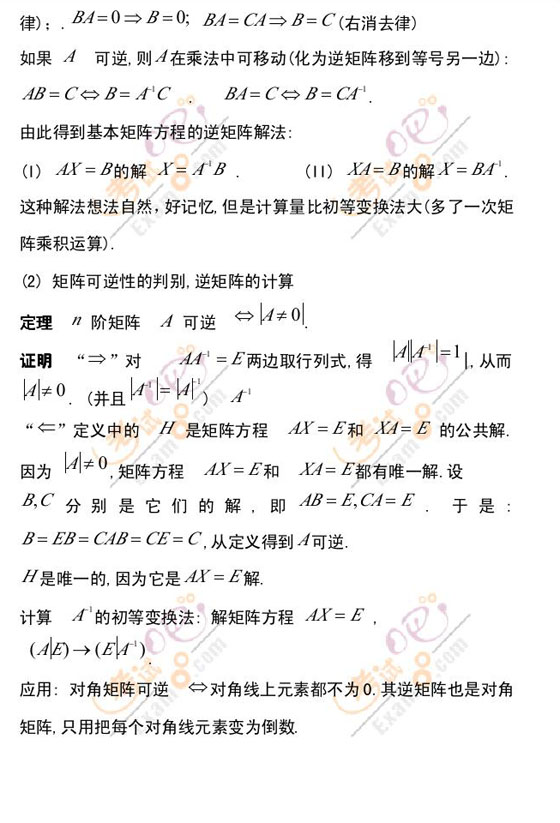 律); . BA = 0 ⇒ B = 0; BA = CA ⇒ B = C (右消去律)
如果 A 可逆,则 A 在乘法中可移动(化为逆矩阵移到等号另一边):
AB = C ⇔ B = A⁻¹C . BA = C ⇔ B = CA⁻¹.
由此得到基本矩阵方程的逆矩阵解法:
(I) AX = B的解 X = A⁻¹B . (II) XA = B的解 X = BA⁻¹.
这种解法想法自然,好记忆,但是计算量比初等变换法大(多了一次矩
阵乘积运算).
(2) 矩阵可逆性的判别,逆矩阵的计算
定理 n 阶矩阵 A 可逆 ⇔|A ≠ 0|.
证明 “⇒”对 AA⁻¹ = E 两边取行列式,得 |A||A⁻¹|=1|,从而
|A|≠ 0 . (并且|A⁻¹|=|A|⁻¹) A⁻¹
“⇐”定义中的 H 是矩阵方程 AX = E 和 XA = E 的公共解.
因为 |A|≠ 0 ,矩阵方程 AX = E 和 XA = E 都有唯一解.设
B,C 分别是它们的解,即 AB = E,CA = E . 于是:
B = EB = CAB = CE = C ,从定义得到 A 可逆.
H 是唯一的,因为它是 AX = E 解.
计算 A⁻¹ 的初等变换法: 解矩阵方程 AX = E ,
(A|E) → (E|A⁻¹) .
应用: 对角矩阵可逆 ⇔对角线上元素都不为0.其逆矩阵也是对角
矩阵,只用把每个对角线元素变为倒数.
考试吧
Exam8.com
考试吧
Exam8.com
考试吧
Exam8.com
考试吧
Exam8.com